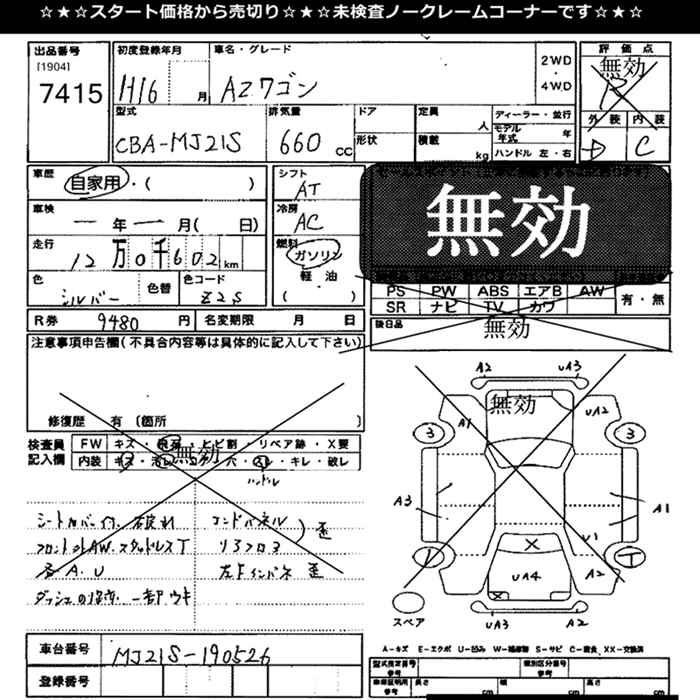 ☆★☆★スタート価格から売切り☆★☆★未検査ノークレームコーナーです☆★☆
出品番号 初度登録年月 車名・グレード 評価点
[1904]
7415 H16 月 AZワゴン 2WD・4WD 無効 R
型式 排気量 ドア 定員 人 ディーラー・並行 外装 内装
CBA-MJ21S 660 CC 形状 積載 kg モデル年式 年 D C
ハンドル 左・右
車歴 自家用・( ) シフト AT
車検 一年一月( 日) 冷房 AC 無効
走行 12万0千602km 燃料 ガソリン
色 シルバー 色替 色コード Z2S 軽油 ( )
PS PW ABS エアB AW 有・無
SR ナビ TV カワ
R券 9480円 名変期限 月 日 後日品 無効
注意事項申告欄(不具合内容等は具体的に記入して下さい)
修復歴 有 〔箇所
検査員記入欄 FW キズ・飛石・ヒビ割・リペア跡・X要
内装 キズ・汚れ・コゲ・穴・スレ・キレ・破れ
無効
ハンドル
シートカバー付 破れ コアドパネル
フロントのAW.スタッドレスT リアフロア 歪
各 A.U 左Fインパネ 歪
ダッシュの 一部ウキ
A2 UA3
無効
A1 UA2
3 3
A3 A1
U1
A2
T
UA4
UA3 A2
スペア
A-キズ E-エクボ U-凹み W-補修跡 S-サビ C-腐食 XX-交換済
車台番号 MJ21S-190526
登録番号
型式指定番号 参考 類別区分番号 参考
車庫証明用 参考 長さ cm 幅 cm 高さ cm